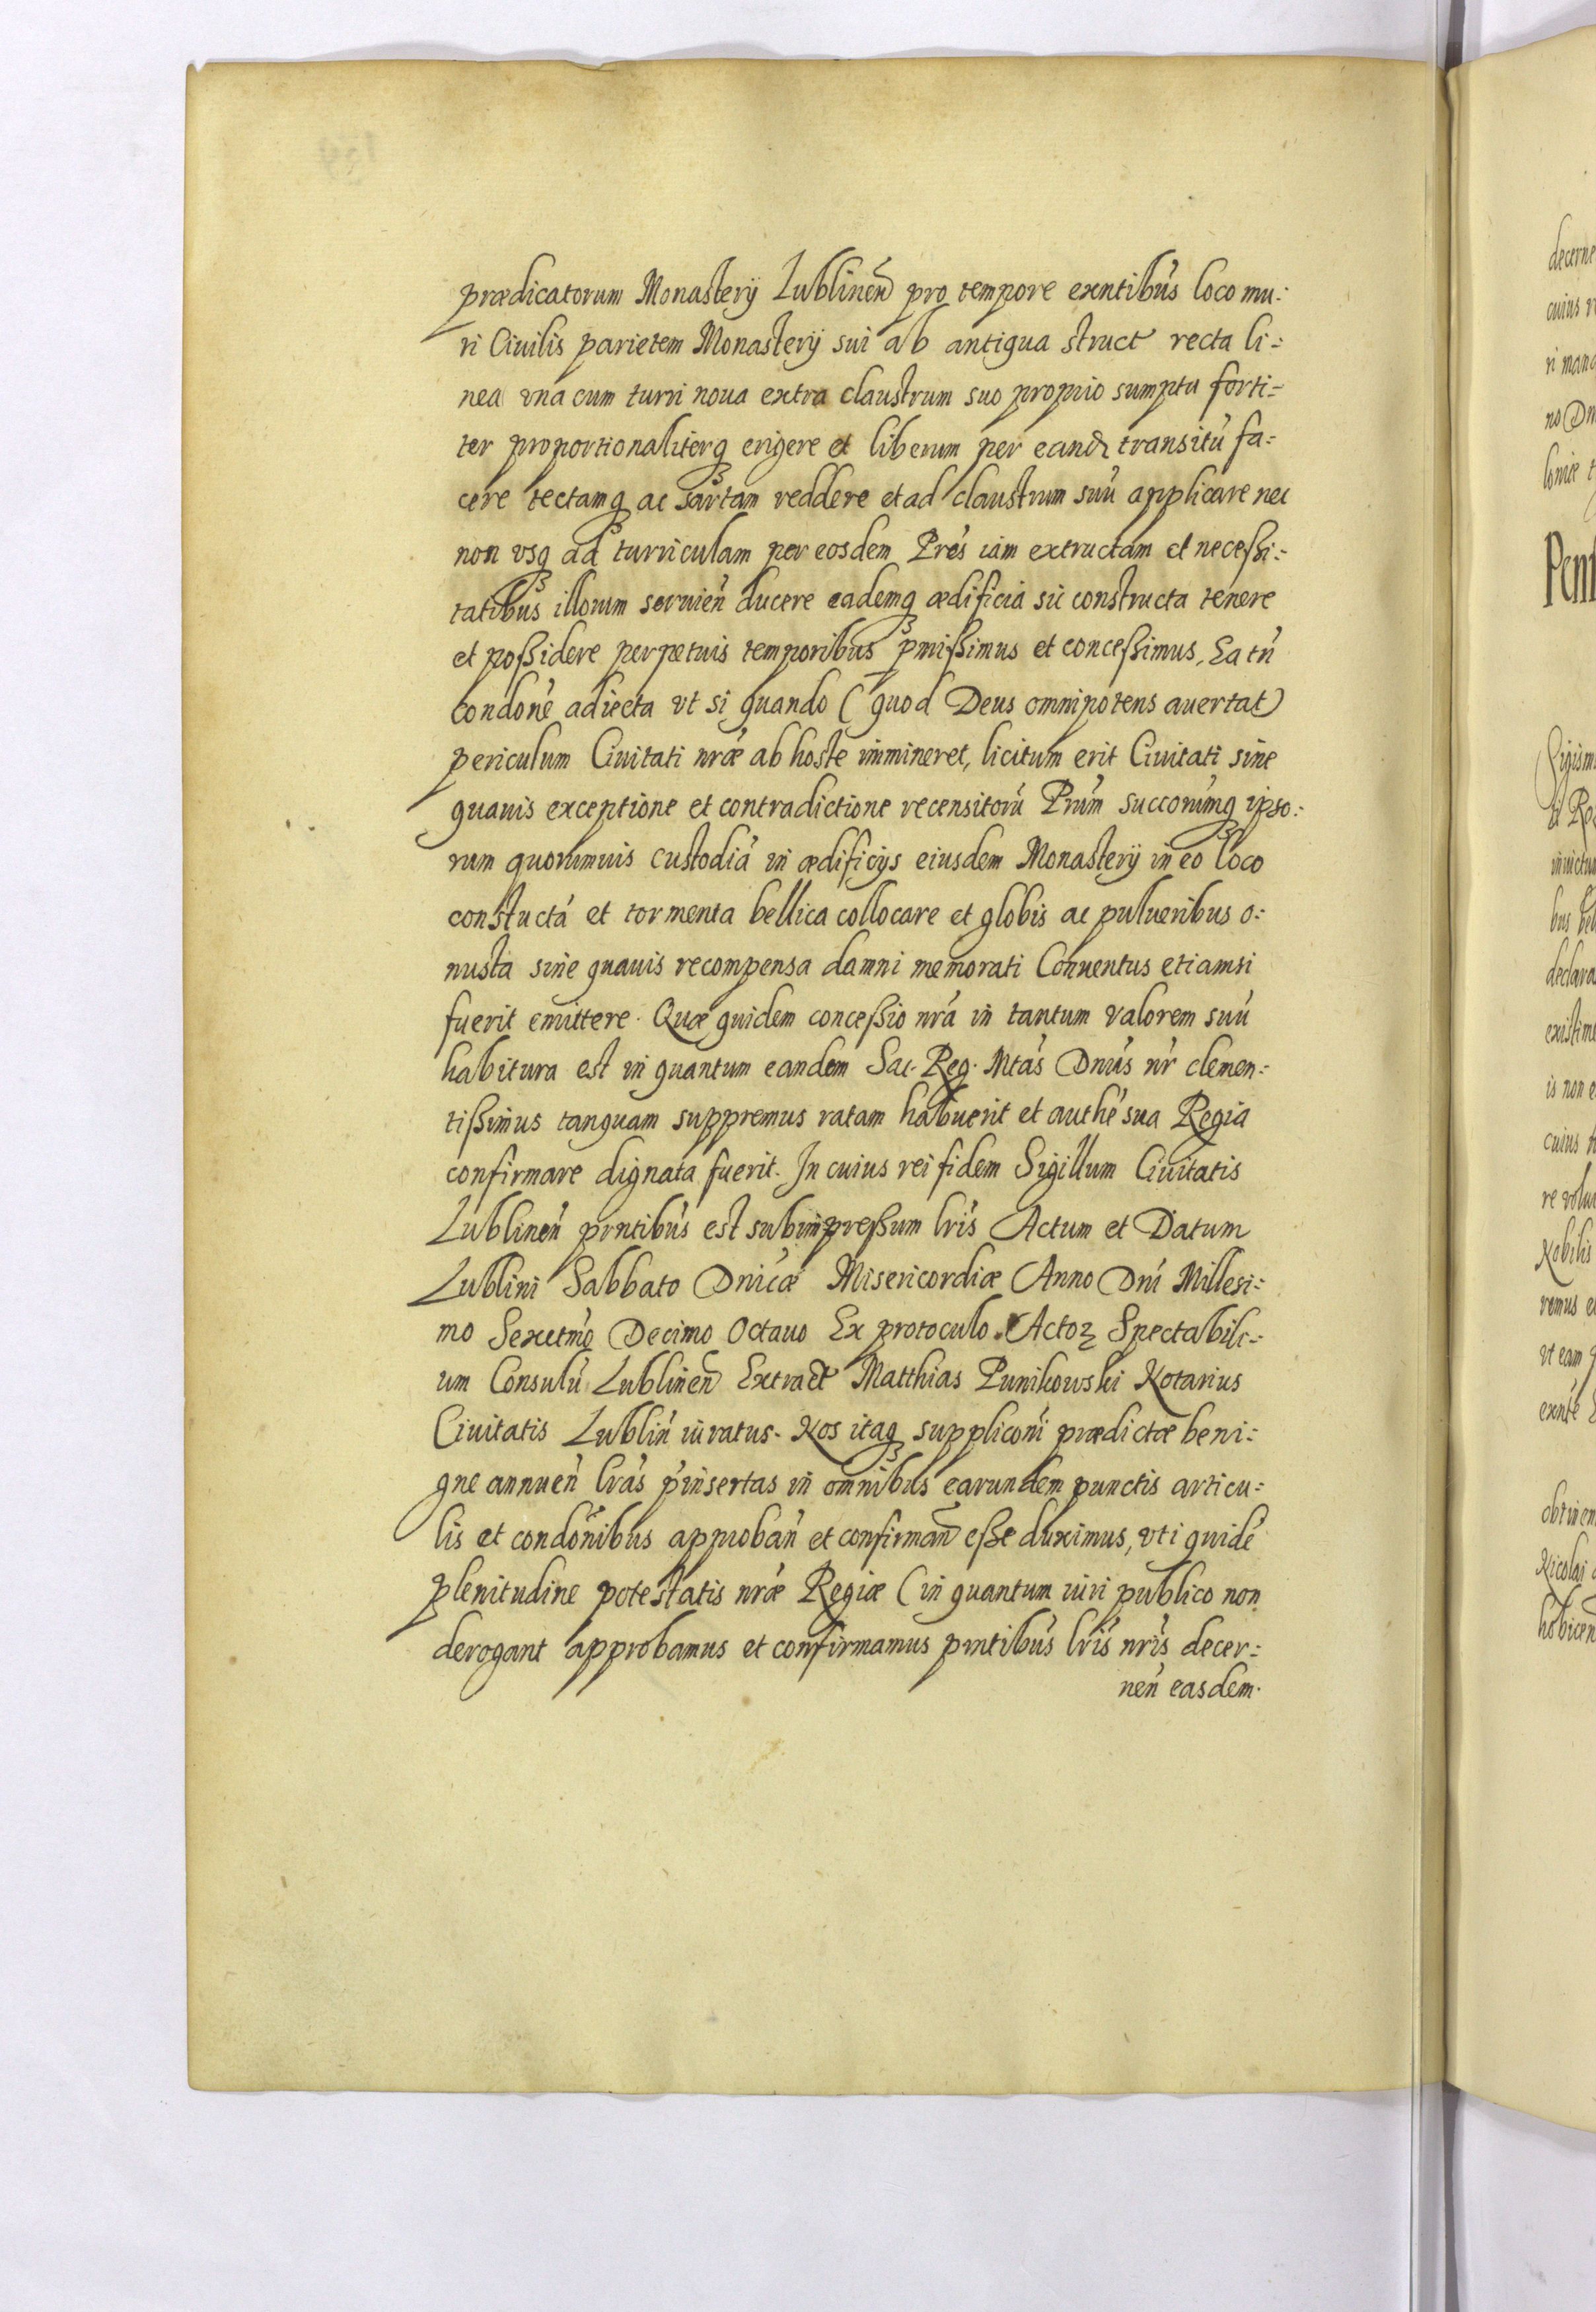 prædicatorum Monasterÿ Lublinen̄ pro tempore exntibús loco mu⸗
ri Ciuilis parietem Monasterÿ sui ab antiqua struct recta li⸗
nea vna cum turri noua extra claustrum suo proprio sumptu forti⸗
ter proportionaliterq́ₔ erigere et liberum per eandꝫ transitú fa⸗
cere tectamqꝫ ac sartam reddere et ad claustrum suú applicare nec
non vsqꝫ ad turriculam per eosdem Prés iam extructam et neceßi⸗
tatibus illorum seruień ducere eademqꝫ ædificia sic constructa tenere
et poßidere perpetuis temporibus pmißimus et conceßimus, Ea tń
condońe adiecta vt si quando (quod Deus omnipotens auertat)
periculum Ciuitati nræ ab hoste immineret, licitum erit Ciuitati sine
quauis exceptione et contradictione recensitorú Prúm succorúmqꝫ ipso⸗
rum quorumuis custodiá in ædificijs eiusdem Monasterÿ in eo loco
constuctá et tormenta bellica collocare et globis ac pulueribus o⸗
nusta sine quauis recompensa damni memorati Conuentus etiamsi
fuerit emittere. Quæ quidem conceßio nrá in tantum valorem suú
habitura est in quantum eandem Sac. Reg. Mtás Dnús nŕ clemen⸗
tißimus tanquam suppremus ratam habuerit et authé sua Regia
confirmare dignata fuerit. In cuius rei fidem Sigillum Ciuitatis
Lublineń prntibús est subimpreßum lrís Actum et Datum
Lublini Sabbato Dnicæ Misericordiæ Anno Dní Millesi⸗
mo Sexctmó Decimo Octauo Ex protoculo Actoꝝ Spectabili⸗
um Consulú Lublinen̄ Extract Matthias Punikowski Notarius
Ciuitatis Lubliń iuratus. Nos itaqꝫ supplicońi prædictæ beni⸗
gne annueń lrás p̓insertas in omnibus earundem punctis articu⸗
lis et condońibus approbań et confirman̄ eße duximus, vti quidé
plenitudine potestatis nræ Regiæ (in quantum iuri publico non
derogant approbamus et confirmamus pntibús lrís nrís decer⸗
neń easdem.